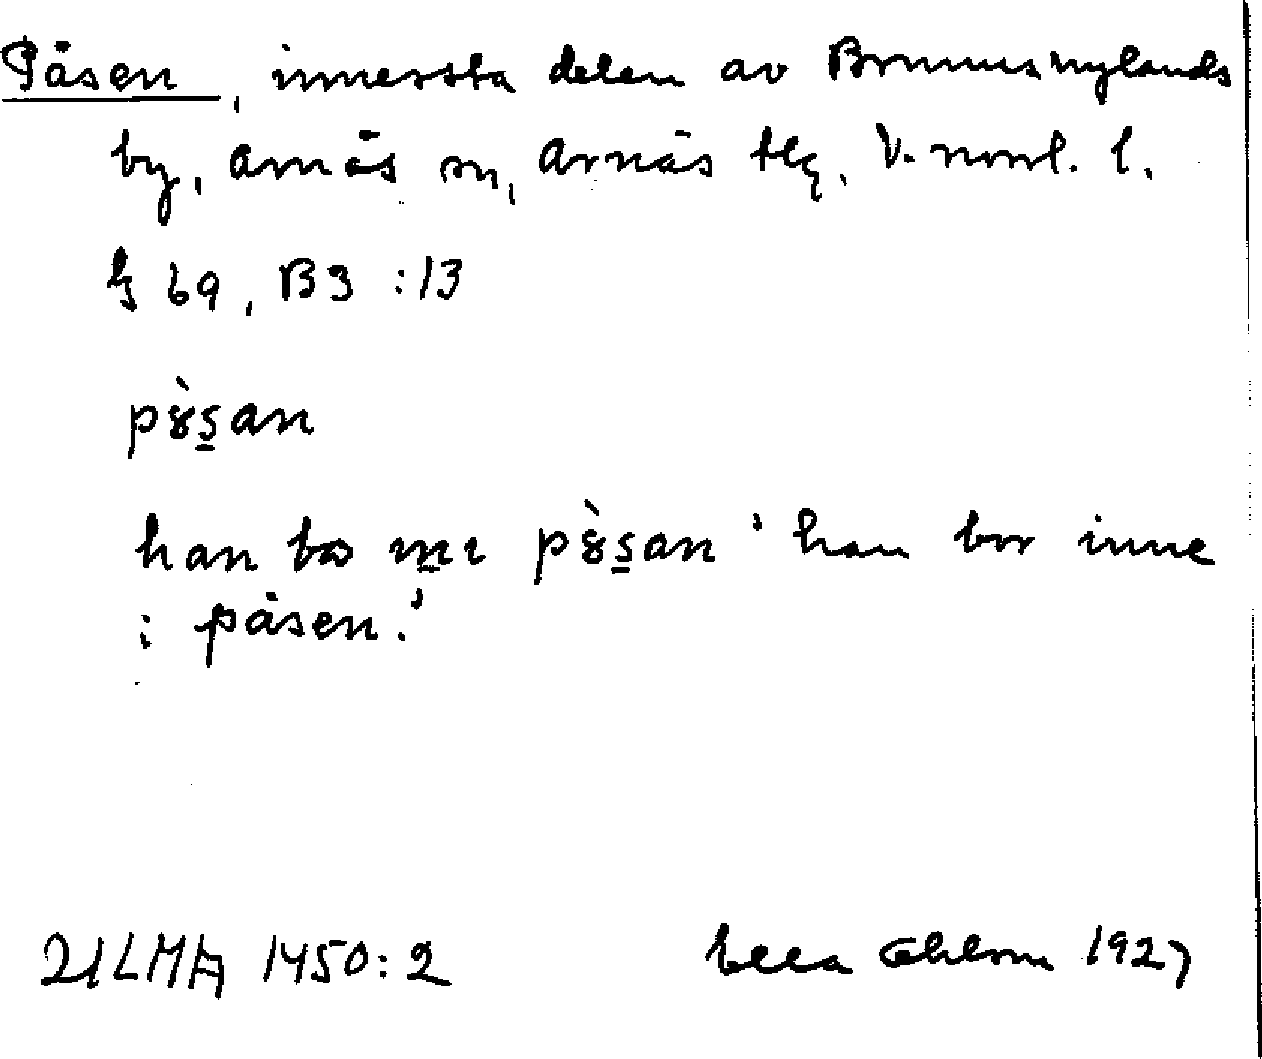 Påsen, innersta delen av Brunnsnylands
by, Arnäs sn, Arnäs tlg. V. norrl. l.
§ 69, B3 :13
pɤ̀s̱an
han bω ın̠ı pɤ̀s̱an 'han bor inne
i påsen.'
ULMA 1450:2 Ella Ohlson 1927